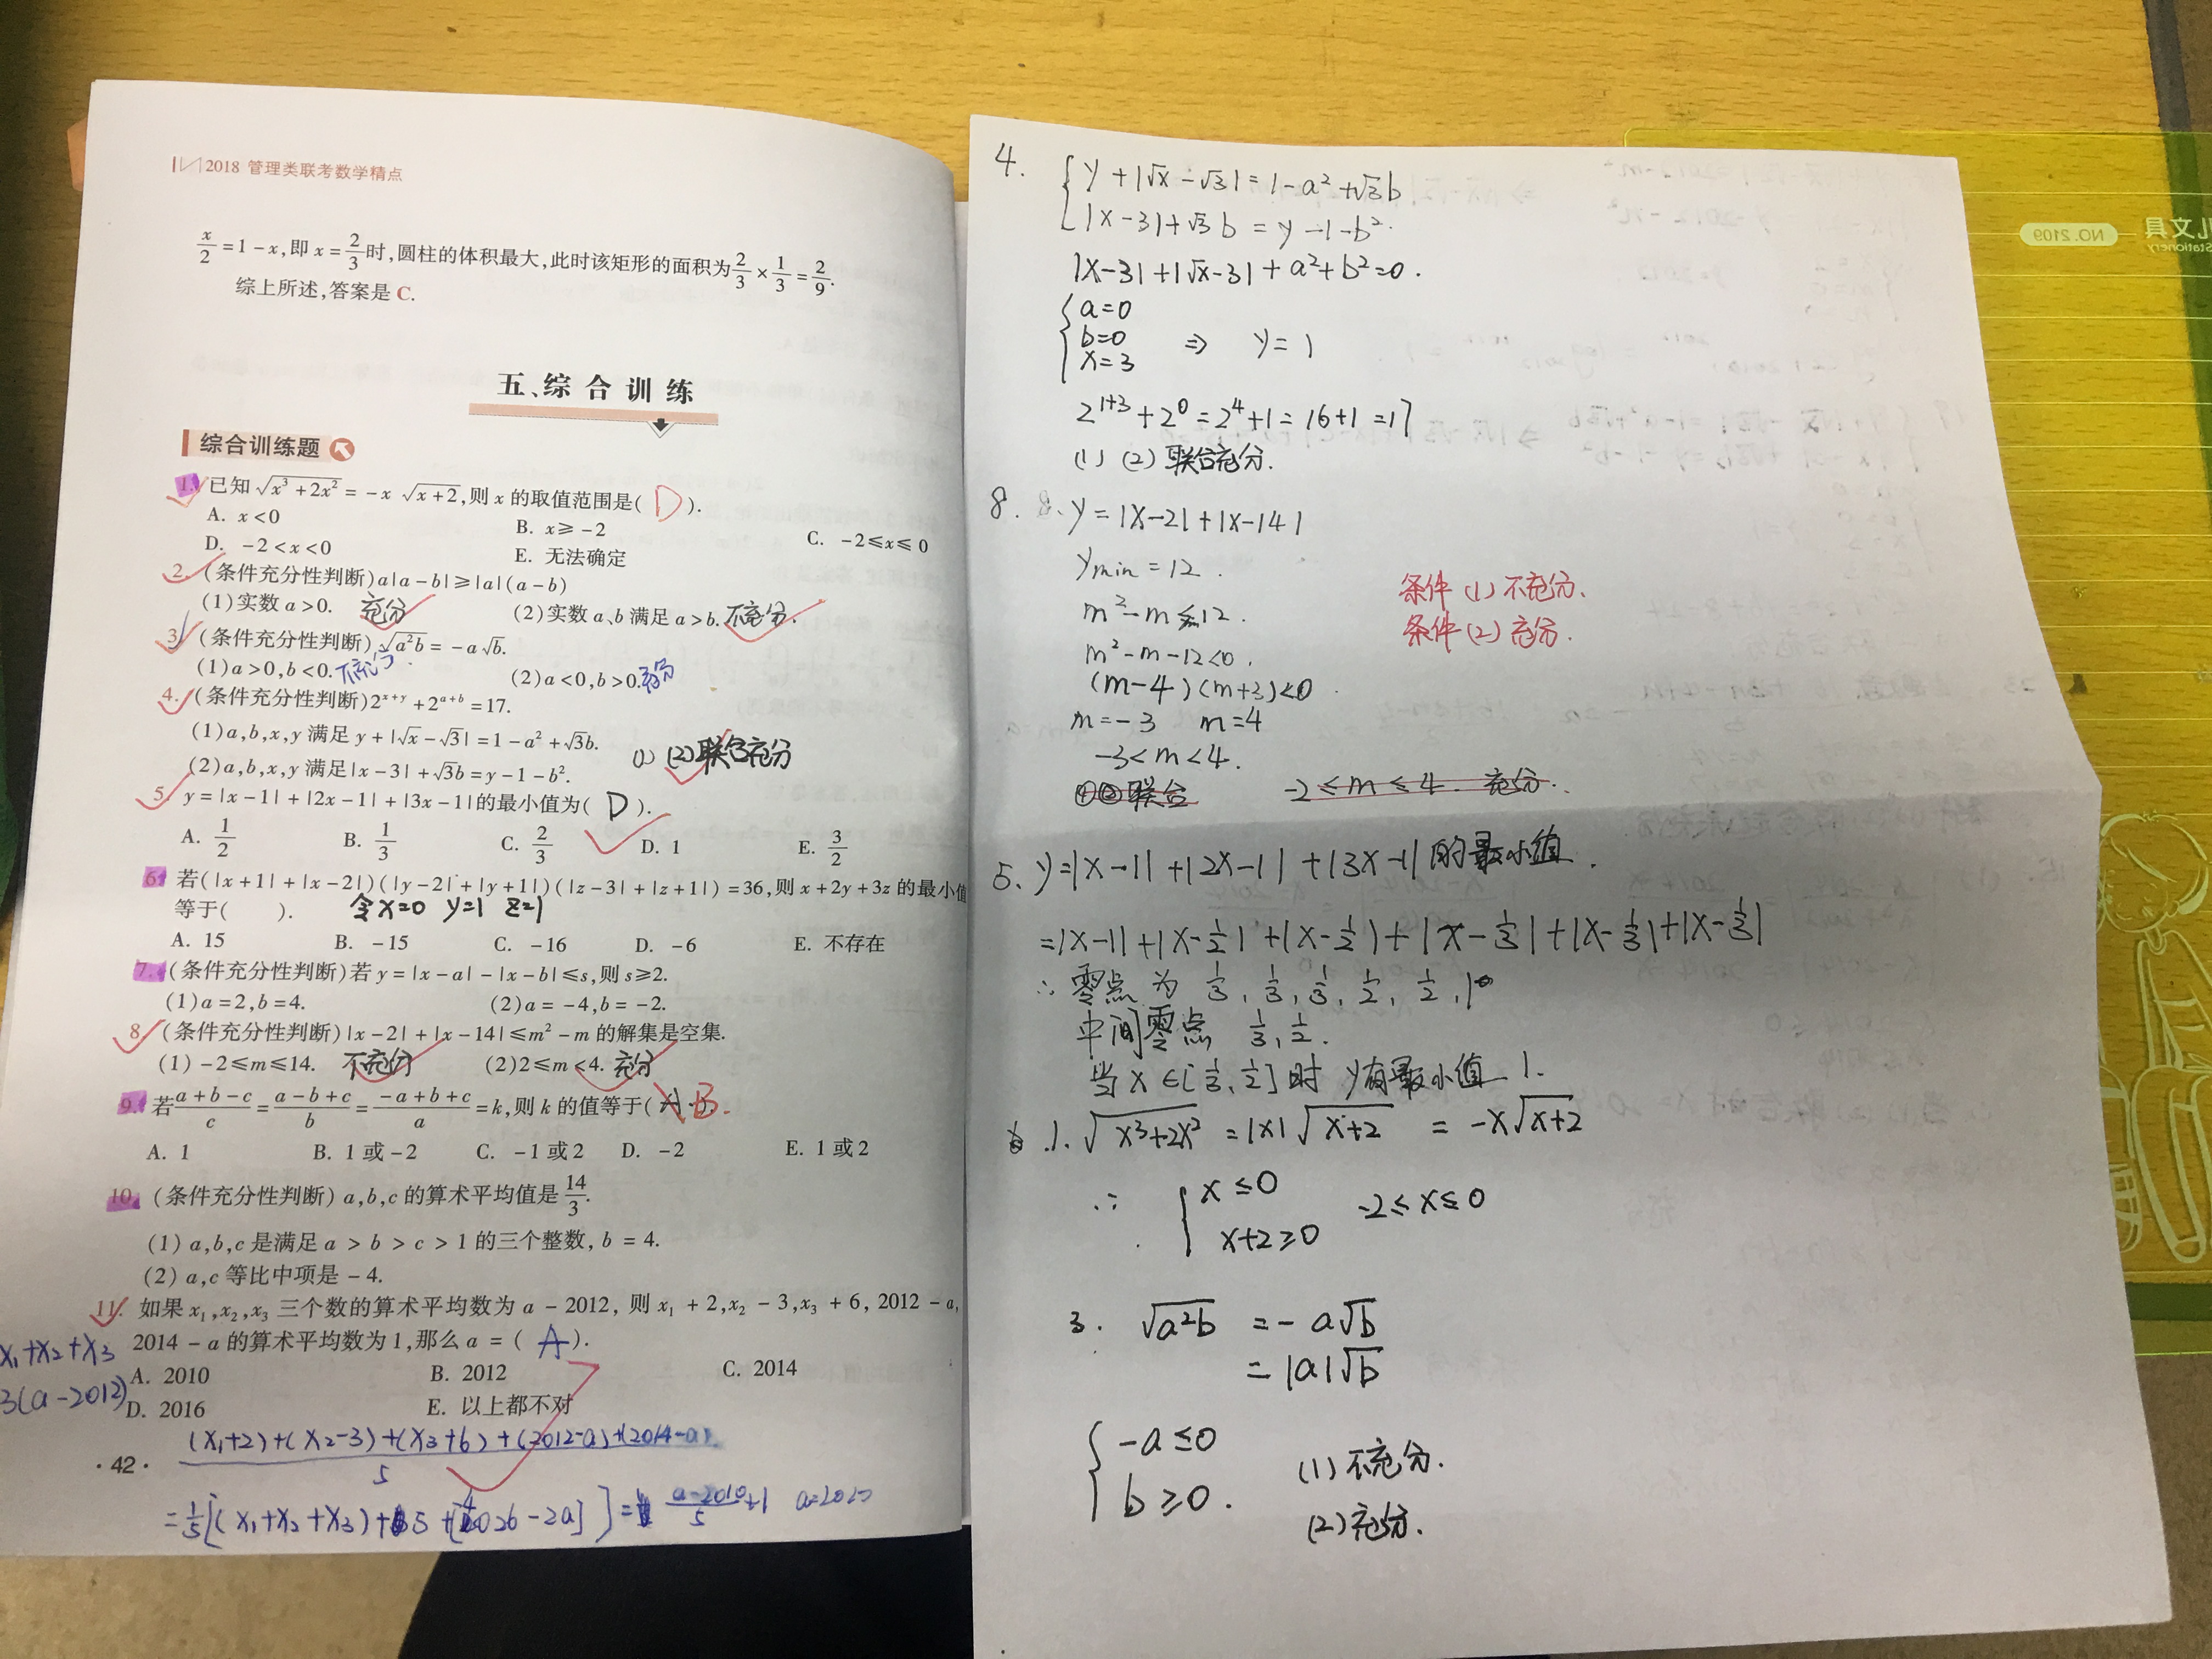 2018 管理类联考数学精点
x/2 = 1 - x, 即 x = 2/3 时, 圆柱的体积最大, 此时该矩形的面积为 2/3 × 1/3 = 2/9.
综上所述, 答案是 C.
五、综合训练
综合训练题
1. 已知 √(x³+2x²) = -x √(x+2), 则 x 的取值范围是( D ).
A. x<0 B. x≥-2 C. -2≤x≤0
D. -2<x<0 E. 无法确定
2. (条件充分性判断) a|a-b|≥|a|(a-b)
(1)实数 a>0. 充分 (2)实数 a、b 满足 a>b. 不充分.
3. (条件充分性判断) √(a²b) = -a√b.
(1) a>0, b<0. 不充分. (2) a<0, b>0. 充分
4. (条件充分性判断) 2^(x+y) + 2^(a+b) = 17.
(1) a,b,x,y 满足 y+|√x-√3| = 1-a²+√3b.
(1) (2)联合充分
(2) a,b,x,y 满足 |x-3|+√3b = y-1-b².
5. y=|x-1|+|2x-1|+|3x-1| 的最小值为( D ).
A. 1/2 B. 1/3 C. 2/3 D. 1 E. 3/2
6. 若(|x+1|+|x-2|)(|y-2|+|y+1|)(|z-3|+|z+1|)=36, 则 x+2y+3z 的最小值
等于( ). 令x=0 y=1 z=1
A. 15 B. -15 C. -16 D. -6 E. 不存在
7. (条件充分性判断)若 y=|x-a|-|x-b|≤s, 则 s≥2.
(1) a=2, b=4. (2) a=-4, b=-2.
8 (条件充分性判断) |x-2|+|x-14|≤m²-m 的解集是空集.
(1) -2≤m≤14. 不充分 (2) 2≤m<4. 充分
9. 若 (a+b-c)/c = (a-b+c)/b = (-a+b+c)/a = k, 则 k 的值等于( A ). B.
A. 1 B. 1 或 -2 C. -1 或 2 D. -2 E. 1 或 2
10. (条件充分性判断) a,b,c 的算术平均值是 14/3.
(1) a,b,c 是满足 a > b > c > 1 的三个整数, b = 4.
(2) a,c 等比中项是 -4.
11. 如果 x₁,x₂,x₃ 三个数的算术平均数为 a-2012, 则 x₁+2, x₂-3, x₃+6, 2012-a,
2014-a 的算术平均数为 1, 那么 a = ( A ).
x₁+x₂+x₃
3(a-2012)
A. 2010 B. 2012 C. 2014
D. 2016 E. 以上都不对
((x₁+2)+(x₂-3)+(x₃+6)+(2012-a)+(2014-a))/5
·42·
=1/5[(x₁+x₂+x₃)+5+[4026-2a]]= (a-2010)/5+1
4. { y+|√x-√3|=1-a²+√3b
|x-3|+√3b=y-1-b².
|x-3|+|√x-3|+a²+b²=0.
{ a=0
b=0 ⇒ y=1
x=3
2^(1+3)+2^0=2^4+1=16+1=17
(1) (2) 联合充分.
8. y=|x-2|+|x-14|
ymin=12.
m²-m≤12.
m²-m-12<0.
(m-4)(m+3)<0
m=-3 m=4
-3<m<4.
①②联合 -2≤m≤4. 充分.
条件(1)不充分.
条件(2)充分.
5. y=|x-1|+|2x-1|+|3x-1| 的最小值.
=|x-1|+|x-1/2|+|x-1/2|+|x-1/3|+|x-1/3|+|x-1/3|
∴ 零点为 1/3, 1/3, 1/3, 1/2, 1/2, 1
中间零点 1/3, 1/2.
当 x∈[1/3, 1/2] 时 y有最小值 1.
1. √(x³+2x²) =|x|√(x+2) = -x√(x+2)
∴ { x≤0
x+2≥0 -2≤x≤0
3. √(a²b) =-a√b
=|a|√b
{ -a≤0
b≥0. (1)不充分.
(2)充分.
NO. 2109